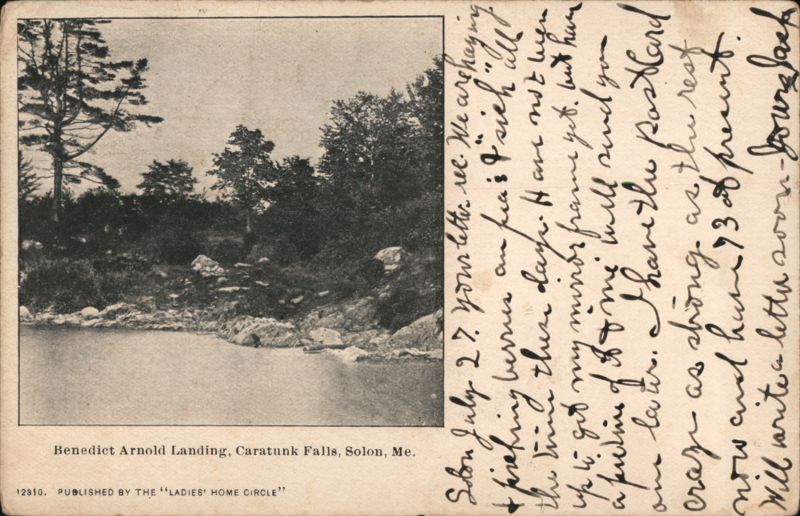 Benedict Arnold Landing, Caratunk Falls, Solon, Me.
12810. PUBLISHED BY THE "LADIES' HOME CIRCLE"
Solon July 27. Your letter rec. We are haying
& picking berries an peas & "sich" all
the time these days. Have not been
up to get my mirror frame yet. but have
a picture of it & me will send you
one later. I have the Post Card
craze as strong as the rest
now and have 73 at present.
Will write a letter soon - Yours Jack